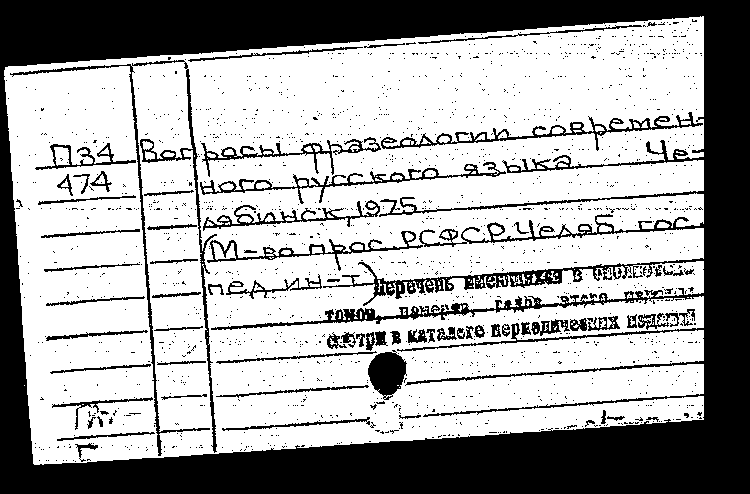 П34 Вопросы фразеологии современ-
474 ного русского языка. Че-
лябинск, 1975
(М-во прос. РСФСР. Челяб. гос.
пед. ин-т)
Перечень имеющихся в библиотеке
томов, номеров, годов этого издания
смотри в каталоге периодических изданий